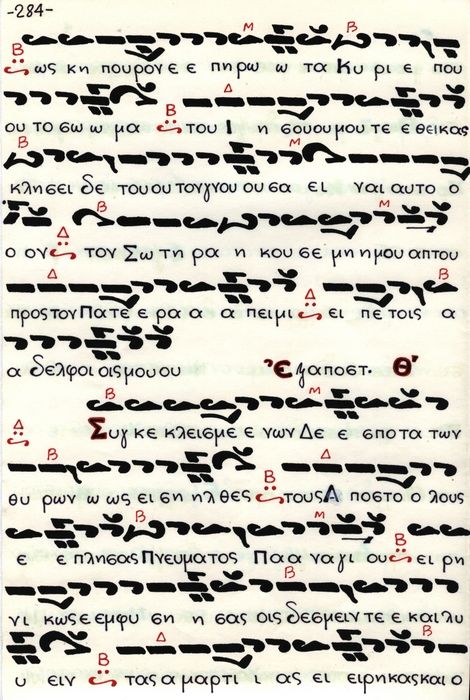 -284-
ως κη πουρον ε ε πη ρω ω τα Κυ ρι ε που
ου το σω ω μα του Ι η σου ου μου τε ε θεικας
κλησει δε του ου του γνου ου σα ει ναι αυτο ο
ο ον τον Σω τη ρα η κου σε μη η μου απτου
προς τον Πατε ε ρα α α πειμι ει πε τοις α
α δελφοι οις μου ου Ἑγαποστ. Θ'
Συγκε κλεισμε ε νων Δε ε σποτα των
θυ ρων ω ως ει ση ηλθες τους Α ποστο ο λους
ε ε πλησας Πνευματος Πα α να γι ου ει ρη
νι κως ε εμφυ ση η σας οις δεσμειν τε ε και λυ
υ ειν τας α μαρτι ι ας ει ειρηκας και ο